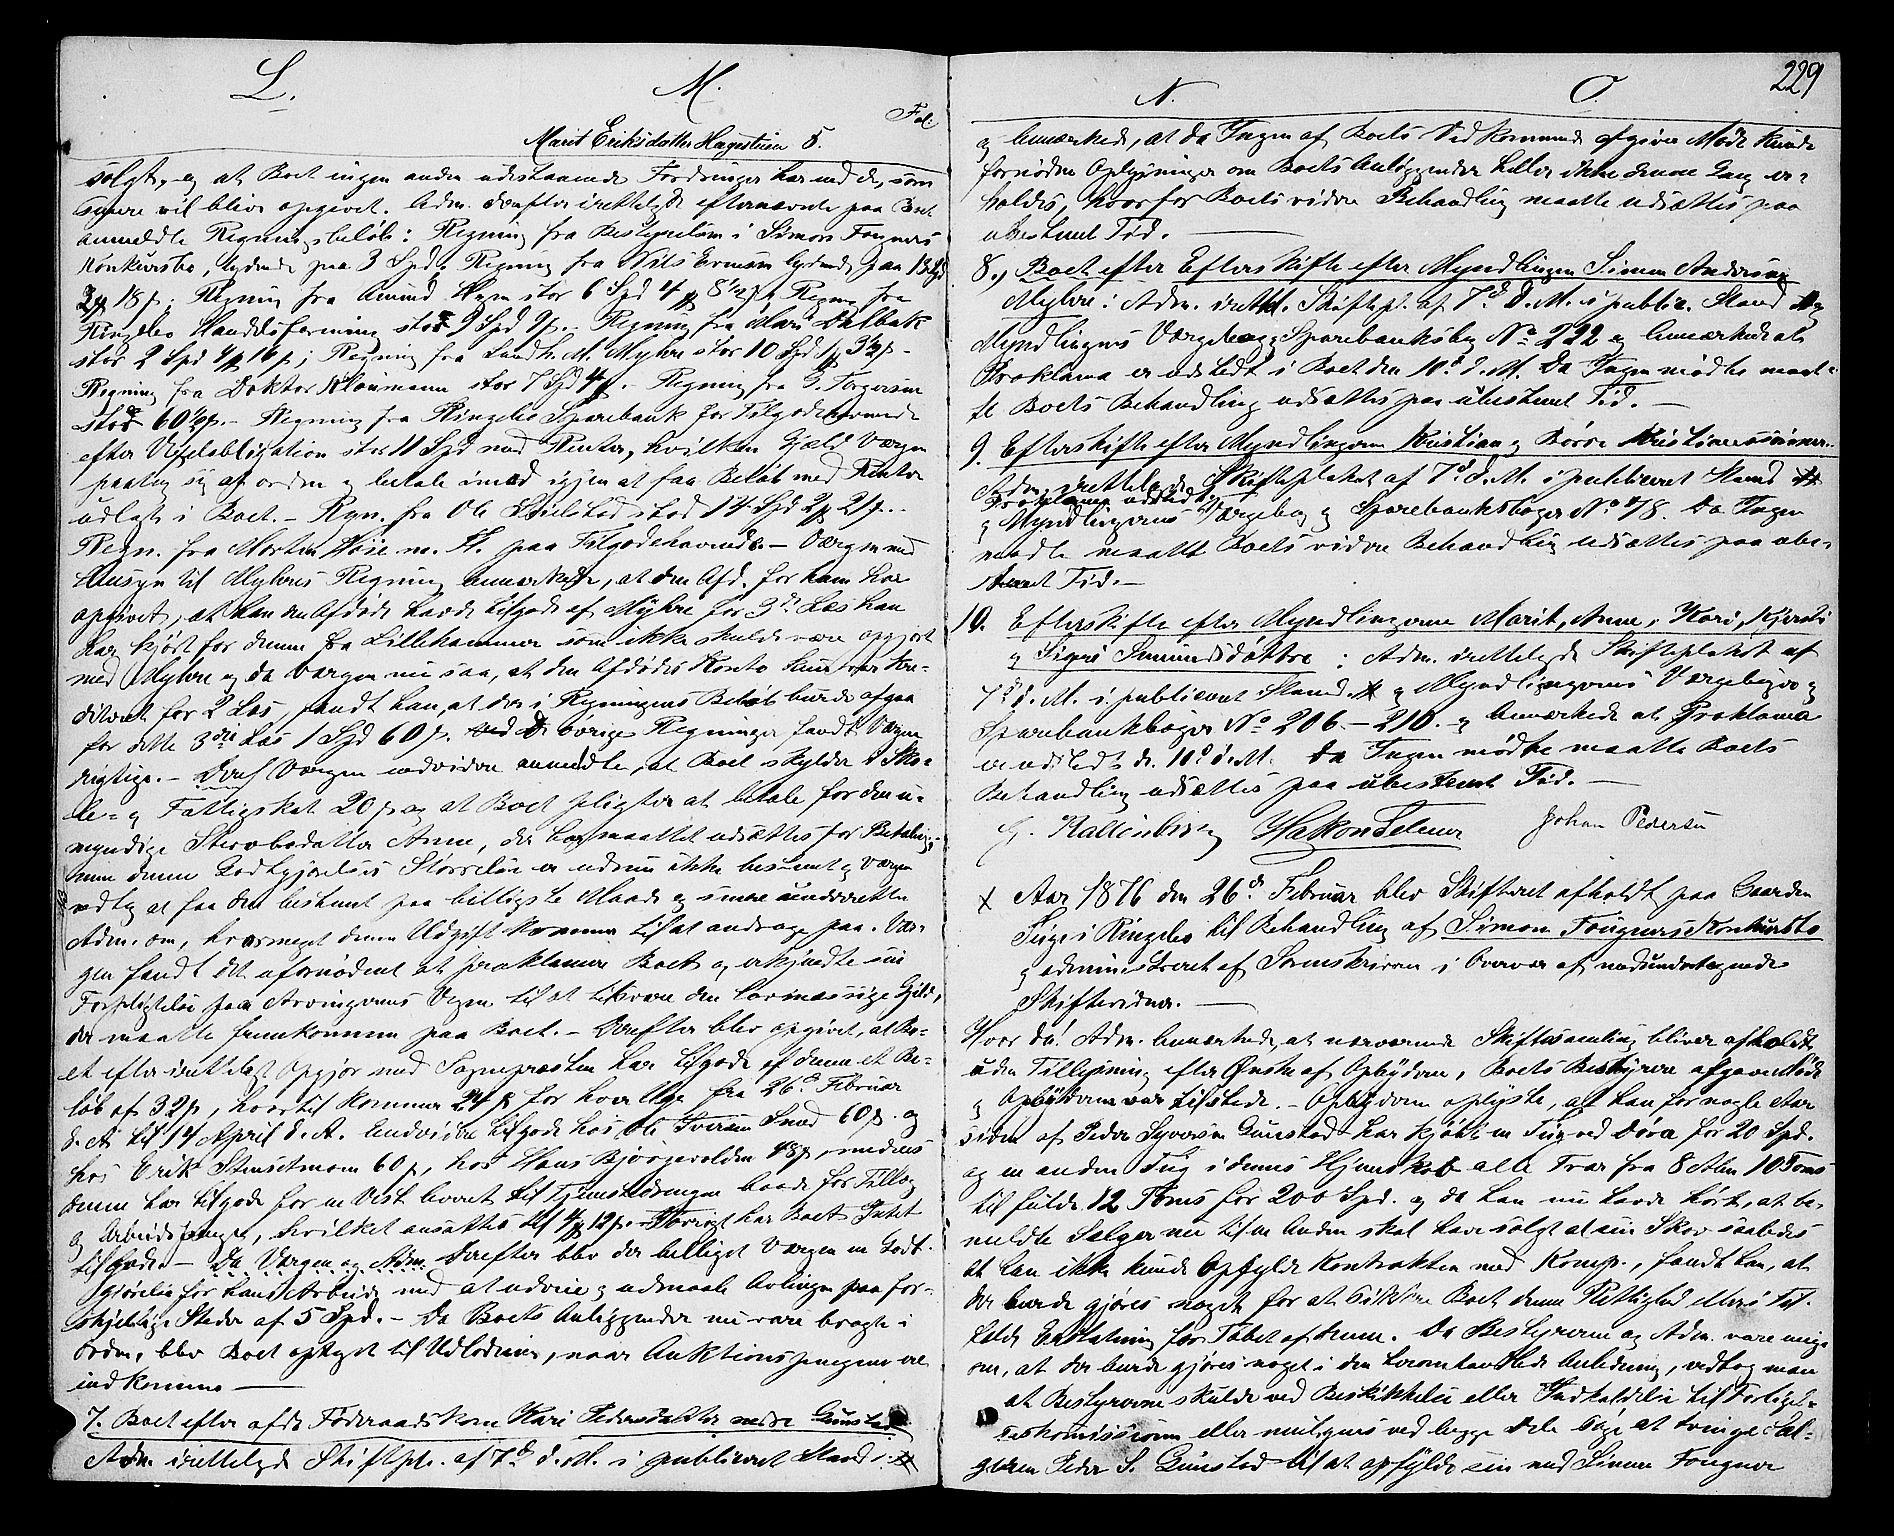 L. M.
Fol:
Marit Eriksdatter Hagestuen 5.
solgt, og at Boet ingen anden udestaaende Fordringer har end de, som
senere vil blive opgivet. Adm. derefter irettelagde efternævnte paa Boet
anmeldte Regningsbeløb: Regning fra Bestyrelsen i Simon Fougners
Konkursbo, lydende paa 3 Spd. Regning fra Nils Evensen lydende paa 13 Spd
2 # 18 p; Regning fra Amund Hagen stor 6 Spd 4 # 8 1/2 p, Regning fra
Ringebo Handelsforening stor 9 Spd 9 p. - Regning fra Mari Dalbak
stor 2 Spd 4 # 16 p; Regning fra Landh. M. Myhre stor 10 Spd 1 # 3 1/2 p -
Regning fra Doktor Kloumann stor 7 Spd 4 #. - Regning fra P. Torgersen
stor 60 1/2 p. - Regning fra Ringebo Sparebank for Tilgodehavende
efter Vexelobligation stor 11 Spd med Renter, hvilken Gjæld Værgen
paatog sig at ordne og betale imod igjen at faa Beløb med Renter
udlagt i Boet. - Regn. fra Ole Skielstad stor 14 Spd 2 # 21 p. -
Regn. fra Morten Høie m. H. paa Tilgodehavende. - Værgen med
Hensyn til Myhres Regning anmærkede, at den Afd. for ham har
opgivet, at han den Afdøde havde tilgode af Myhre for 3de Læs han
har kjørt for denne fra Lillehammer som ikke skulde være opgjort
med Myhre og da Værgen nu saa, at den Afdødes Konto kun var kre-
diteret for 2 Læs, fandt han, at der i Regningens Beløb burde afgaa
for dette 3die Læs 1 Spd 60 p. De øvrige Regninger fandt Værgen
rigtige. - Værgen endvidere anmeldte, at Boet skylder i Sko-
le- og Fattigskat 20 p og at Boet pligter at betale for den u-
myndige Stervbodatter Anne, der har maattet udsættes for Betaling,
men denne Godtgjørelses Størrelse er endnu ikke bestemt og Værgen
vedtog at faa den bestemt paa billigste Maade og senere underrette
Adm. om, hvormeget denne Udgift kommer til at andrage paa. Vær-
gen fandt det ufornødent at proklamere Boet og erkjendte sin
Forpligtelse paa Arvingernes Vegne til at tilsvare den lovmæssige Gjæld,
der maatte fremkomme paa Boet. - Derefter blev opgivet, at Bo-
et efter irettelagt Opgjør med Sognepræsten har tilgode af denne et Be-
løb af 32 p, hvortil kommer 24 p for hver Uge fra 26de Februar
d. A. til 14 April d. A. Endvidere tilgode hos Ole Iversen Snod 60 p. og
hos Erik Stensetmoen 60 p, hos Hans Bjørgevolden 48 p, medens
denne har tilgode for en Vest levert til Tjenestedrengen baade for Tillæg
og Arbeidspenge, hvilket ansattes til 4 # 12 p. Forøvrigt har Boet Intet
tilgode. - Da Værgen og Adm. Derefter blev der billiget Værgen en Godt-
gjørelse for hans Arbeide med at udveie og udmaale Avlingen paa for-
skjellige Steder af 5 Spd. - Da Boets Anliggender nu vare bragte i
Orden, blev Boet optaget til Udlodning, naar Auktionspengene ere
indkomne
7. Boet efter afdø Føderaadskone Kari Pedersdatter nedre Gunstad
Adm. irettelagde Skiftepl. af 7de d. M. i publiceret Stand
N. O. 229
og bemærkede, at da Ingen af Boets Vedkommende afgiver Møde kunde
fornødne Oplysninger om Boets Anliggender heller ikke denne Gang er-
holdes, hvorfor Boets videre Behandling maatte udsættes paa
ubestemt Tid.
8., Boet efter Efterskifte efter Myndlingen Simen Andersen
Myhre: Adm. irettel. Skiftepl. af 7de d. M. i public. Stand og
Myndlingens Værgebog, Sparebanksbog No 222 og bemærkede at
Proklama er udstedt i Boet den 10de d. M. Da Ingen mødte maat-
te Boets Behandling udsættes paa ubestemt Tid. -
9. Efterskifte efter Myndlingerne Kristian og Børre Kristiansssønner..
Adm. irettelagde Skifteplakat af 7de d. M. i publiceret Stand
Proklama udstedt
og Myndlingernes Værgebog og Sparebanksbøger No 4/8. Da Ingen
mødte maatte Boets videre Behandling udsættes paa ube-
stemt Tid. -
10. Efterskifte efter Myndlingerne Marit, Anne, Kari, Kjersti
og Sigri Simensdøttre: Adm. irettelagde Skifteplakat af
7de d. M. i publiceret Stand og Myndlingernes Værgebøger og
Sparebankbøger No 206. - 210. og bemærkede at Proklama
er udstedt d. 10de d. M. Da Ingen mødte maatte Boets
Behandling udsættes paa ubestemt Tid. -
G. Kallenberg Haken Selmer Johan Pedersen
+ Aar 1876 den 26de Februar blev Skifteret afholdt paa Gaarden
Tuge i Ringebo til Behandling af Simon Fougners Konkursbo
og administreret af Sorenskriveren i Overvær af nedundertegnede
Skiftevidner. -
Hvor da! Adm. bemærkede, at nærværende Skiftesamling bliver afholdt
uden Tillysning efter Ønske af Opbyderen, Boets Bestyrere afgave Møde
og Opbyderen var tilstede. - Opbyderen oplyste, at han for nogle Aar
siden af Peder Syversen Gunstad har kjøbt en Tug ved Døra for 20 Spd.
og en anden Tug i dennes Hjemskov alle Trær fra 8 Alen 10 Toms
til fulde 12 Toms for 200 Spd. og da han nu havde hørt, at be-
meldte Sælger nu til en Anden skal have solgt al sin Skov saaledes
at han ikke kunde opfylde Kontrakten med Komp., fandt han, at
der burde gjøres noget for at sikkre Boet denne Rettighed ellers til-
felde Erstatning for Tabet af denne. Da Bestyrerne og Adm. vare enige
om, at der burde gjøres noget i den heromhandlede Anledning, vedtog man
at Bestyrerne skulde ved Beskikkelse eller Indkaldelse til Forligel-
seskommissionen eller muligens ved begge Dele søge at tvinge Sæl-
geren Peder S. Gunstad til at opfylde sin med Simon Fougner